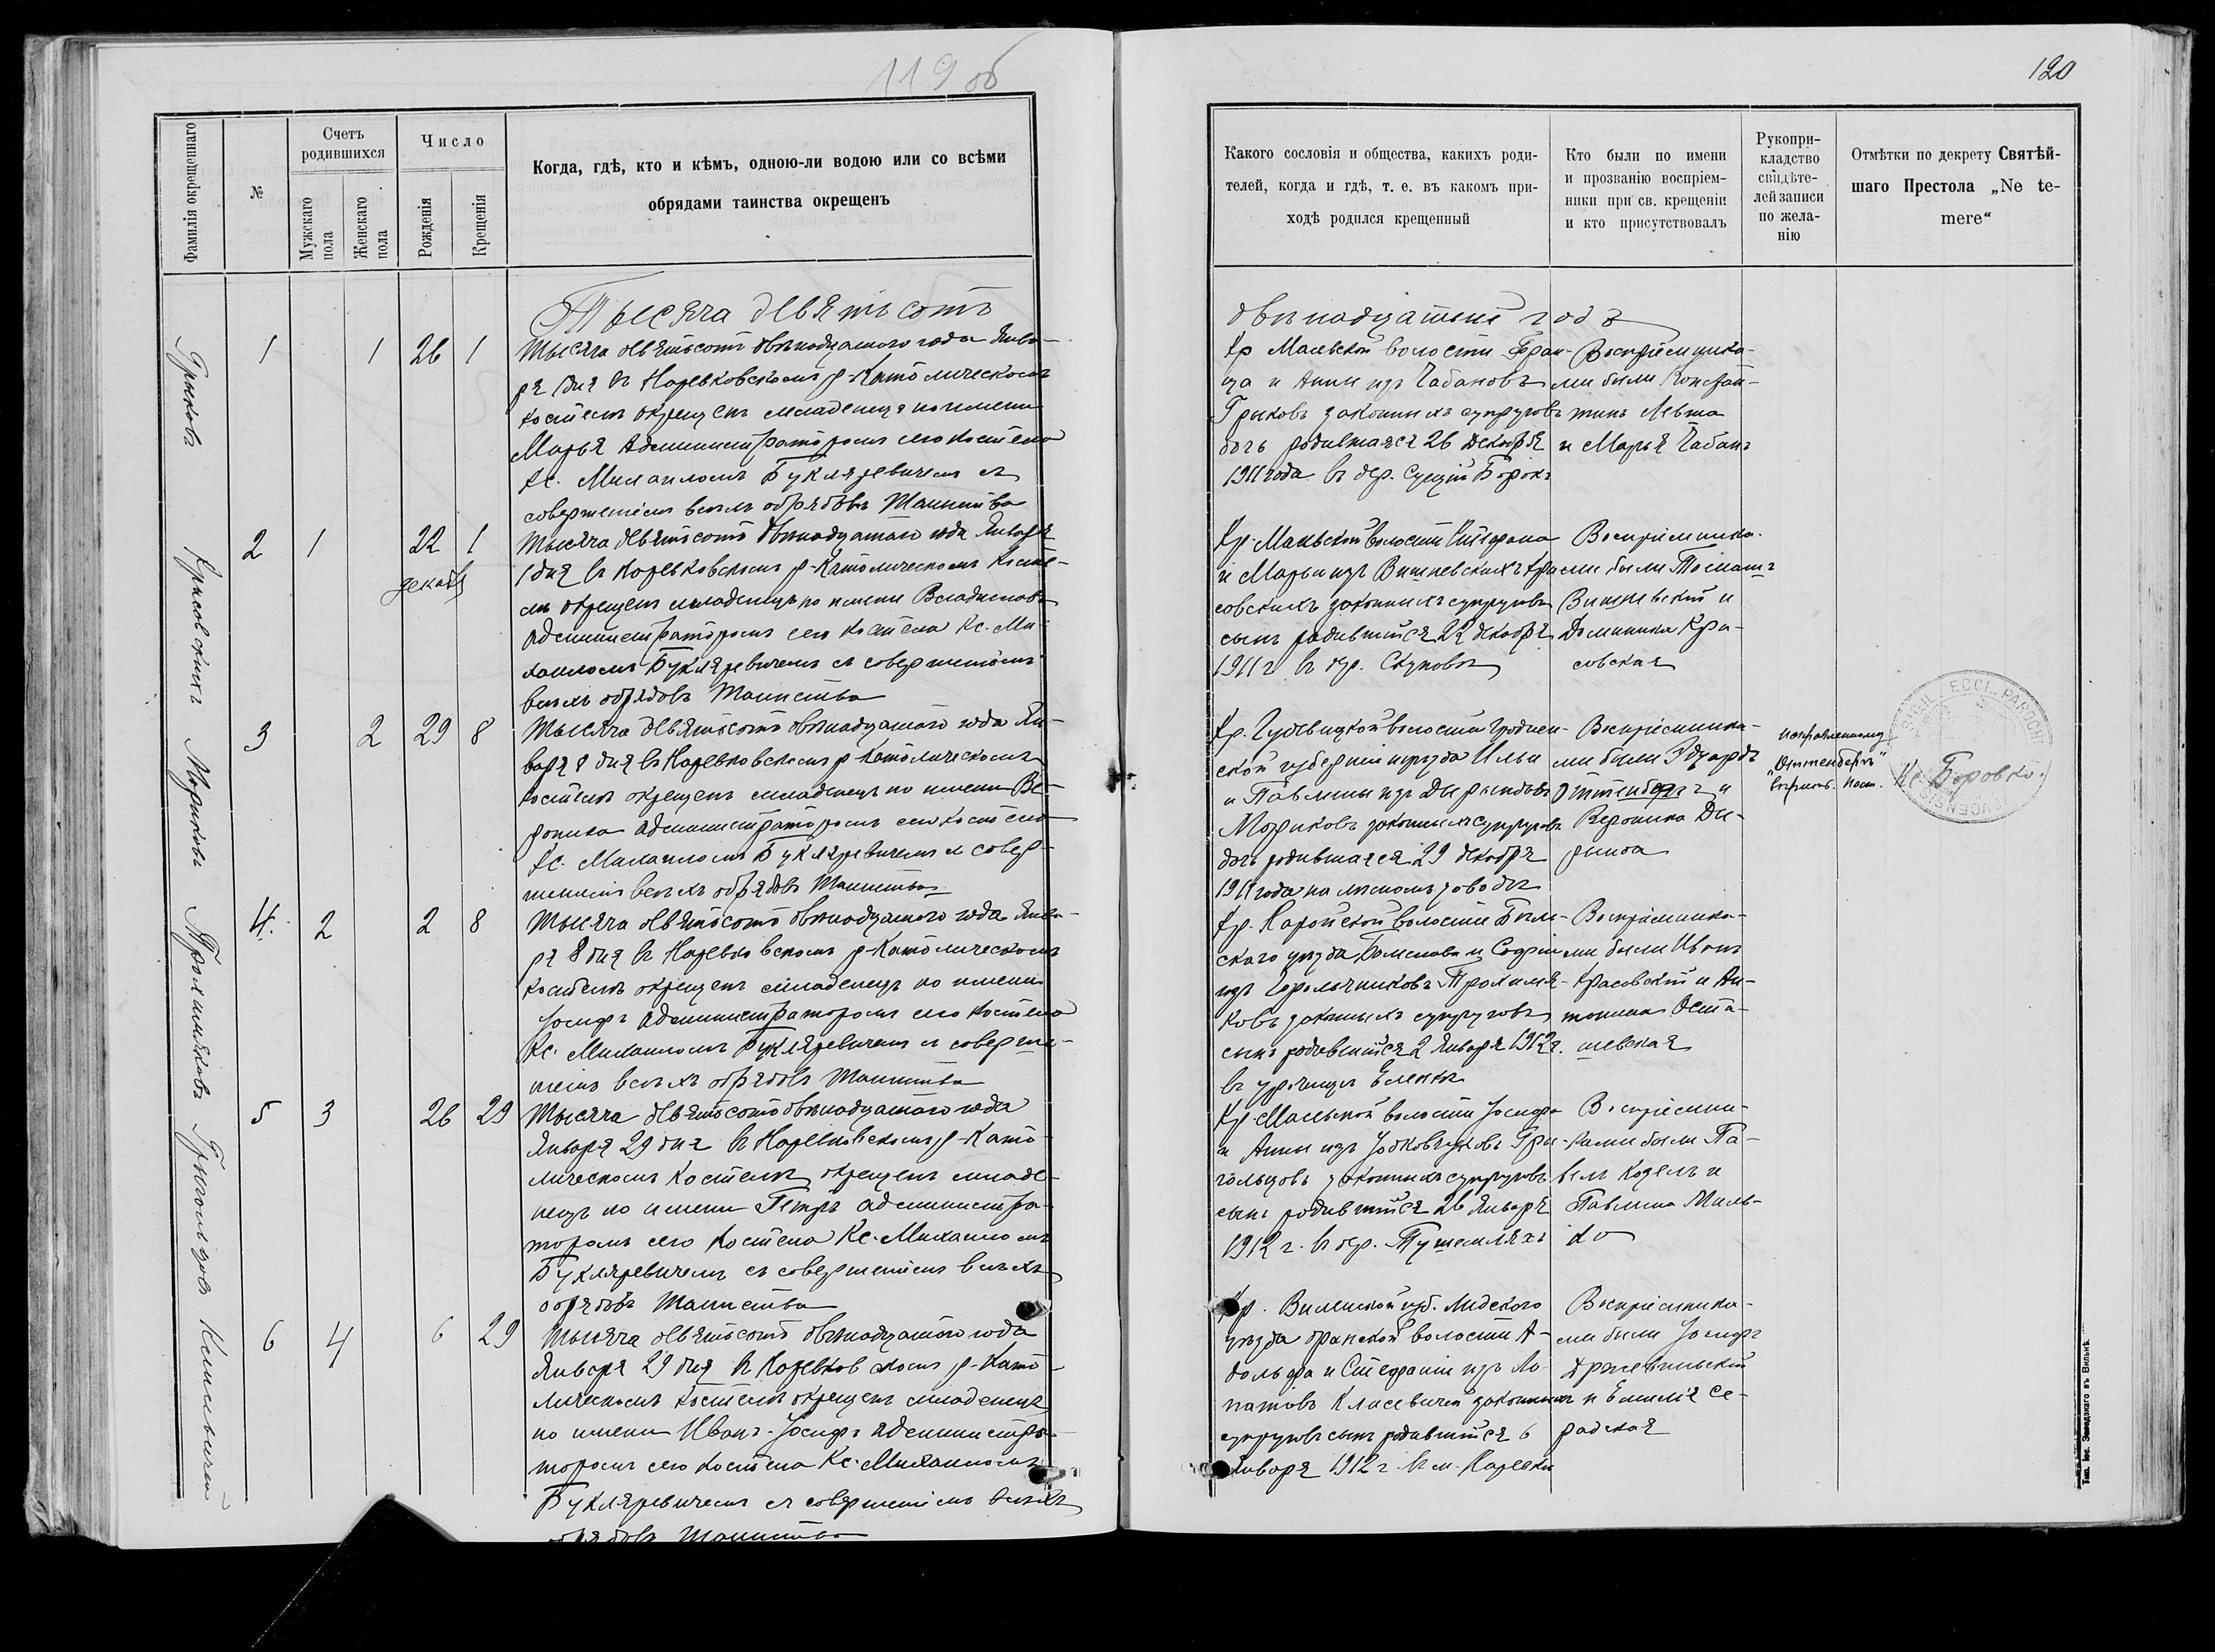 119 об
Фамилія окрещеннаго
№
Счетъ
родившихся
Мужскаго
пола
Женскаго
пола
Число
Рожденія
Крещенія
Когда, гдѣ, кто и кѣмъ, одною-ли водою или со всѣми
обрядами таинства окрещенъ
Тысяча девятьсотъ
1 1 26 1
Тысяча девятьсотъ двѣнадцатого года Янва-
ря 1 дня въ Наревковскомъ р-Католическомъ
костелѣ окрещенъ младенецъ по имени
Марья Администраторомъ сего костела
Кс. Михаиломъ Букляревичемъ съ
совершеніемъ всѣхъ обрядовъ Таинства
2 1 22 1
декабр
Тысяча девятьсотъ двѣнадцатого года Января
1 дня въ Наревковскомъ р-Католическомъ Косте-
лѣ окрещенъ младенецъ по имени Владиславъ
Администраторомъ сего костела Кс. Ми-
хаиломъ Букляревичемъ съ совершеніемъ
всѣхъ обрядовъ Таинства
3 2 29 8
Тысяча девятьсотъ двѣнадцатого года Ян-
варя 8 дня въ Наревковскомъ р-Католическомъ
костелѣ окрещенъ младенецъ по имени Ве-
роника Администраторомъ сего костела
Кс. Михаиломъ Букляревичемъ съ совер-
шеніемъ всѣхъ обрядовъ Таинства
4. 2 2 8
Тысяча девятьсотъ двѣнадцатого года Янва-
ря 8 дня въ Наревковскомъ р-Католическомъ
костелѣ окрещенъ младенецъ по имени
Іосифъ Администраторомъ сего Костела
Кс. Михаиломъ Букляревичемъ съ соверше-
ніемъ всѣхъ обрядовъ Таинства
5 3 26 29
Тысяча девятьсотъ двѣнадцатого года
Января 29 дня въ Наревковскомъ р-Като-
лическомъ Костелѣ окрещенъ младе-
нецъ по имени Петръ Администра-
торомъ сего Костела Кс. Михаиломъ
Букляревичемъ съ совершеніемъ всѣхъ
обрядовъ Таинства
6 4 6 29
Тысяча девятьсотъ двѣнадцатого года
Января 29 дня въ Наревковскомъ р-Като-
лическомъ Костелѣ окрещенъ младенецъ
по имени Иванъ-Іосифъ Администра-
торомъ сего Костела Кс. Михаиломъ
Букляревичемъ съ совершеніемъ всѣхъ
обрядовъ Таинства
Грыковъ
Крысовскихъ
Мориковъ
Трохимяковъ
Григольцовъ
Клисевичей
120
Какого сословія и общества, какихъ роди-
телей, когда и гдѣ, т. е. въ какомъ при-
ходѣ родился крещенный
Кто были по имени
и прозванію воспріем-
ники при св. крещеніи
и кто присутствовалъ
Рукопри-
кладство
свидѣте-
лей записи
по жела-
нію
Отмѣтки по декрету Святѣй-
шаго Престола „Ne te-
mere“
двѣнадцатый годъ
Кр Масевской волости Фран-
ца и Анны изъ Чабановъ
Грыковъ законныхъ супруговъ
дочь родившаяся 26 Декабря
1911 года въ дер. Сущій Борокъ
Воспріемника-
ми были Констан-
тинъ Левша
и Марья Чабанъ
Кр. Масевской волости Стефана
и Марьи изъ Вишневскихъ Кры-
совскихъ законныхъ супруговъ
сынъ родившійся 22 декабря
1911 г. въ дер. Скуповѣ
Воспріемника-
ми были Томашъ
Вишневскій и
Доминика Кры-
совская
Кр. волости Гроднен-
ской губерніи уѣзда Ильи
и Павлины изъ
законныхъ супруговъ
дочь родившаяся 29 декабря
1911 года на лѣсномъ заводѣ
Воспріемника-
ми были Эдуардъ
Оттенбергъ и
Вероника Ды-
рында
исправленному
„Оттенбергъ“
вѣрить.
Кс. Боровко.
SIGIL. ECCL. PAROCHI
Кр. волости Бѣль-
скаго уѣзда Болеслава и Софіи
Трохимя-
ковъ законныхъ супруговъ
сынъ родившійся 2 Января 1912 г.
въ урочищѣ Еленка
Воспріемника-
ми были Иванъ
Красовскій и Ан-
тонина Оста-
шевская
Кр. Масевской волости Іосифа
и Анны изъ Гри-
гольцовъ законныхъ супруговъ
сынъ родившійся 26 Января
1912 г. въ дер. Тушемляхъ
Воспріемни-
ками были Па-
велъ Козелъ и
Павлина Миль-
ко
Кр. Виленской губ. Лидского
уѣзда Оранской волости А-
дольфа и Стефаніи изъ Ло-
патовъ Клисевичей законныхъ
супруговъ сынъ родившійся 6
Января 1912 г. въ м. Наревкѣ
Воспріемника-
ми были Іосифъ
и Емилія Се-
радская
Тип. Іос. Завадзкаго въ Вильнѣ.